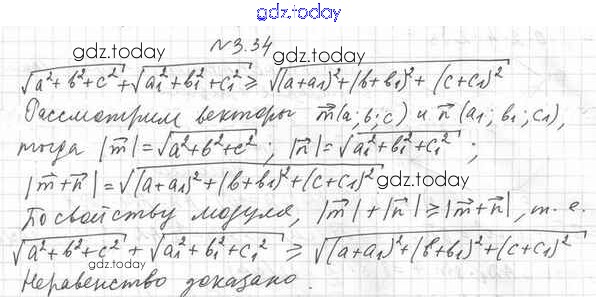 gdz.today
№3.34
gdz.today
√(a²+b²+c²) + √(a₁²+b₁²+c₁²) ≥ √((a+a₁)²+(b+b₁)²+(c+c₁)²)
gdz.today
Рассмотрим векторы m⃗(a; b; c) и n⃗(a₁; b₁; c₁),
тогда |m⃗|=√(a²+b²+c²); |n⃗|=√(a₁²+b₁²+c₁²);
gdz.today
|m⃗+n⃗|=√((a+a₁)²+(b+b₁)²+(c+c₁)²)
gdz.today
По свойству модуля, |m⃗|+|n⃗|≥|m⃗+n⃗|, т.е.
√(a²+b²+c²) + √(a₁²+b₁²+c₁²) ≥ √((a+a₁)²+(b+b₁)²+(c+c₁)²)
gdz.today
Неравенство доказано.